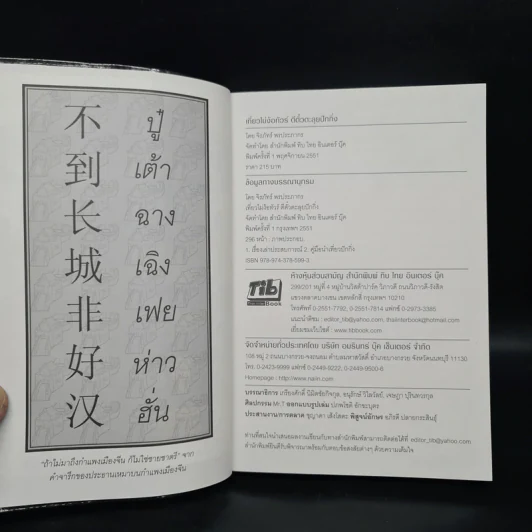 不 ปู๋
到 เต้า
长 ฉาง
城 เฉิง
非 เฟย
好 ห่าว
汉 ฮั่น
"ถ้าไม่มาถึงกำแพงเมืองจีน ก็ไม่ใช่ชายชาตรี" จาก
คำจารึกของประธานเหมาบนกำแพงเมืองจีน
เที่ยวไม่ง้อทัวร์ ตีตั๋วตะลุยปักกิ่ง
โดย จิรภัทร์ พรประภากร
จัดทำโดย สำนักพิมพ์ ทิบ ไทย อินเตอร์ บุ๊ค
พิมพ์ครั้งที่ 1 พฤศจิกายน 2551
ราคา 215 บาท
ข้อมูลทางบรรณานุกรม
โดย จิรภัทร์ พรประภากร
เที่ยวไม่ง้อทัวร์ ตีตั๋วตะลุยปักกิ่ง
จัดทำโดย สำนักพิมพ์ ทิบ ไทย อินเตอร์ บุ๊ค
พิมพ์ครั้งที่ 1 กรุงเทพฯ 2551
296 หน้า : ภาพประกอบ.
1. เรื่องเล่าประสบการณ์ 2. คู่มือนำเที่ยวปักกิ่ง
ISBN 978-974-578-599-3
Tib
ห้างหุ้นส่วนสามัญ สำนักพิมพ์ ทิบ ไทย อินเตอร์ บุ๊ค
แขวงตลาดบางเขน เขตหลักสี่ กรุงเทพฯ 10210
โทรศัพท์ 0-2551-7782, 0-2551-7814 แฟกซ์ 0-2973-2385
แนะนำติชม : editor_tib@yahoo.com, thaiinterbook@hotmail.com
เยี่ยมชมเว็บไซต์ : www.tibbook.com
จัดจำหน่ายทั่วประเทศโดย บริษัท อมรินทร์ บุ๊ค เซ็นเตอร์ จำกัด
โทร. 0-2423-9999 แฟกซ์ 0-2449-9222, 0-2449-9500-6
Homepage : http://www.naiin.com